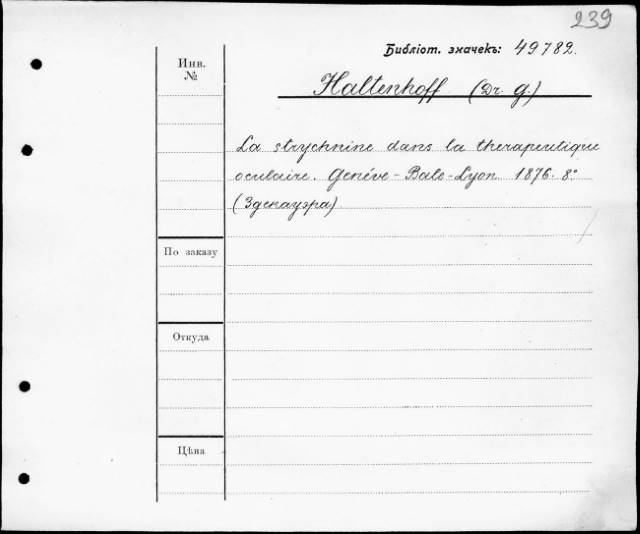 239
Библіот. значекъ: 49782.
Инв.
№
Haltenhoff (Dr. G.)
La strychnine dans la therapeutique
oculaire. Genéve - Bale - Lyon 1876. 8°
(Здекауэра)
По заказу
Откуда
Цѣна